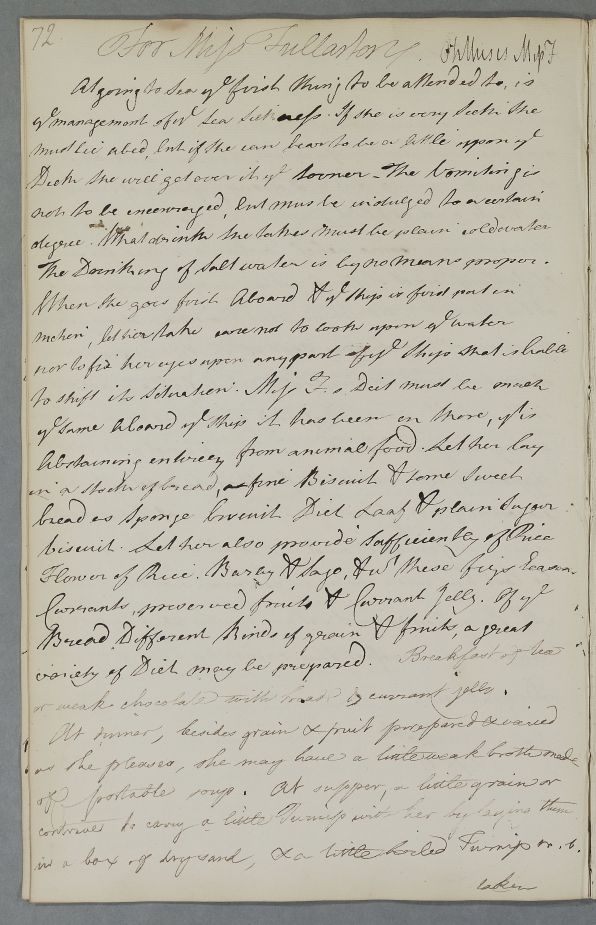 72.
For Miss Fullarton. Phthisis Miss F
At going to Sea yᵉ first thing to be attended to, is
yᵉ management of yᵉ Sea Sickness. If she is very Sick she
must lie abed, but if she can bear to be a little upon yᵉ
Deck she will get over it yᵉ sooner – The Vomiting is
not to be encouraged, but must be indulged to a certain
degree. What drink she takes must be plain cold water
The Drinking of Salt water is by no means proper.
When she goes first Aboard & yᵉ ship is first put in
motion, let her take care not to look upon yᵉ water
nor to fix her eyes upon any part of yᵉ Ship that is liable
to shift its Situation. Miss F.s Deit must be much
yᵉ same Aboard yᵉ ship it has been on shore, yᵗ is
Abstaining entirely from animal food. Let her lay
in a stock of bread, as fine Biscuit & some sweet
bread as Sponge biscuit Diet Loaf & plain Sugar
biscuit. Let her also provide Sufficiently of Rice
Flower of Rice, Barley & Sago, & wᵗ these figs
Currants, preserved fruits & Currant Jelly. Of yᵉ
Bread, Different Kinds of grain & fruits, a great
variety of Diet may be prepared. Breakfast of tea
or weak chocolate with bread & currant jelly.
At dinner, besides grain & fruit prepared & varied
as she pleases, she may have a little weak broth made
of portable soup. At supper, a little grain or
contrives to carry a little Turnip with her by laying them
in a box of dry sand, & a little boiled Turnip
taken